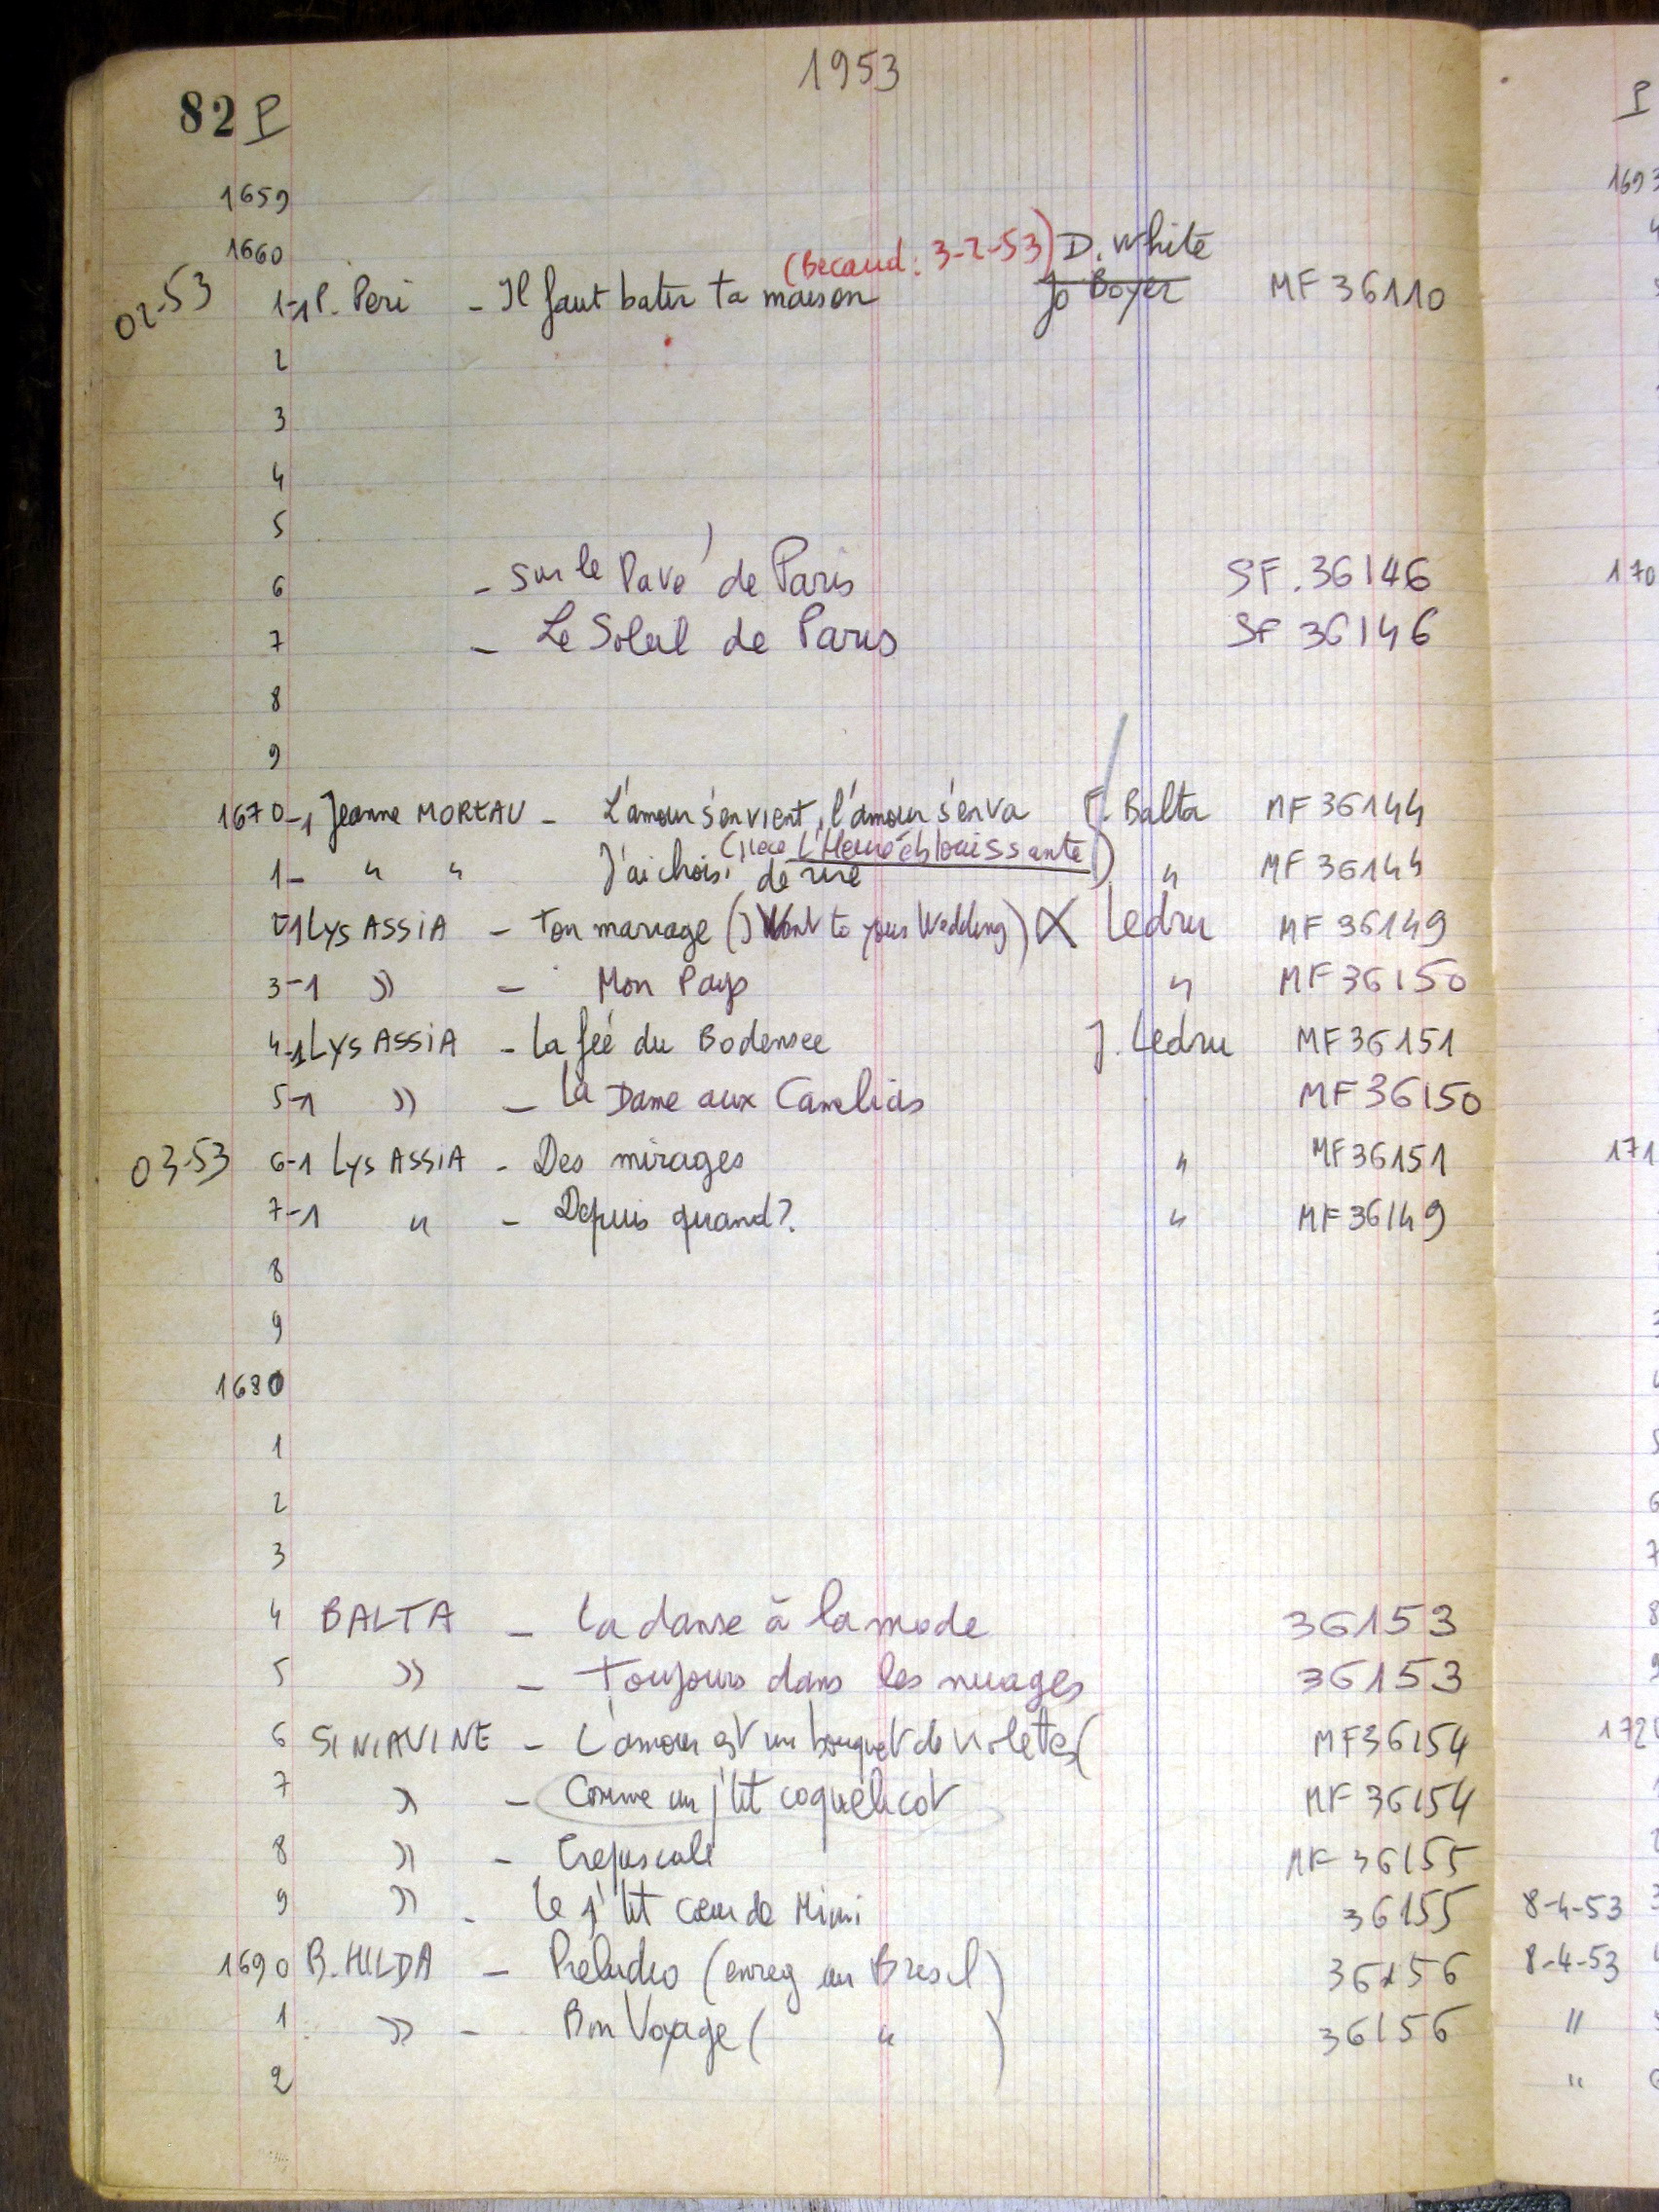 1953
82 P
1659
1660
(Becaud: 3-2-53) D. White
02-53 1-1 P. Peri - Il faut batir ta maison Jo Boyer MF 36110
2
3
4
5
6 - Sur le Pavé de Paris SF. 36146
7 - Le Soleil de Paris SF 36146
8
9
1670-1 Jeanne MOREAU - L'amour s'en vient, l'amour s'en va F. Balta MF 36144
L'Heure éblouissante)
1- " " J'ai choisi de rire " MF 36144
2-1 Lys ASSIA - Ton mariage (I Went to your Wedding) X Ledru MF 36149
3-1 » - Mon Pays " MF 36150
4-1 Lys ASSIA - La feé du Bodensee J. Ledru MF 36151
5-1 » - La Dame aux Camelias MF 36150
03-53 6-1 Lys ASSIA - Des mirages " MF 36151
7-1 " - Depuis quand? " MF 36149
8
9
1680
1
2
3
4 BALTA - La danse à la mode 36153
5 » - Toujours dans les nuages 36153
6 SINIAVINE - L'amour est un bouquet de violettes MF 36154
7 » - Comme un p'tit coquelicot MF 36154
8 » - Crepuscule MF 36155
9 » - Le p'tit cœur de Mimi 36155
1690 B. HILDA - Preludio (enreg au Bresil) 36156
1 » - Bon Voyage ( " ) 36156
2
P
1693
170
171
172
8-4-53
8-4-53
"
"